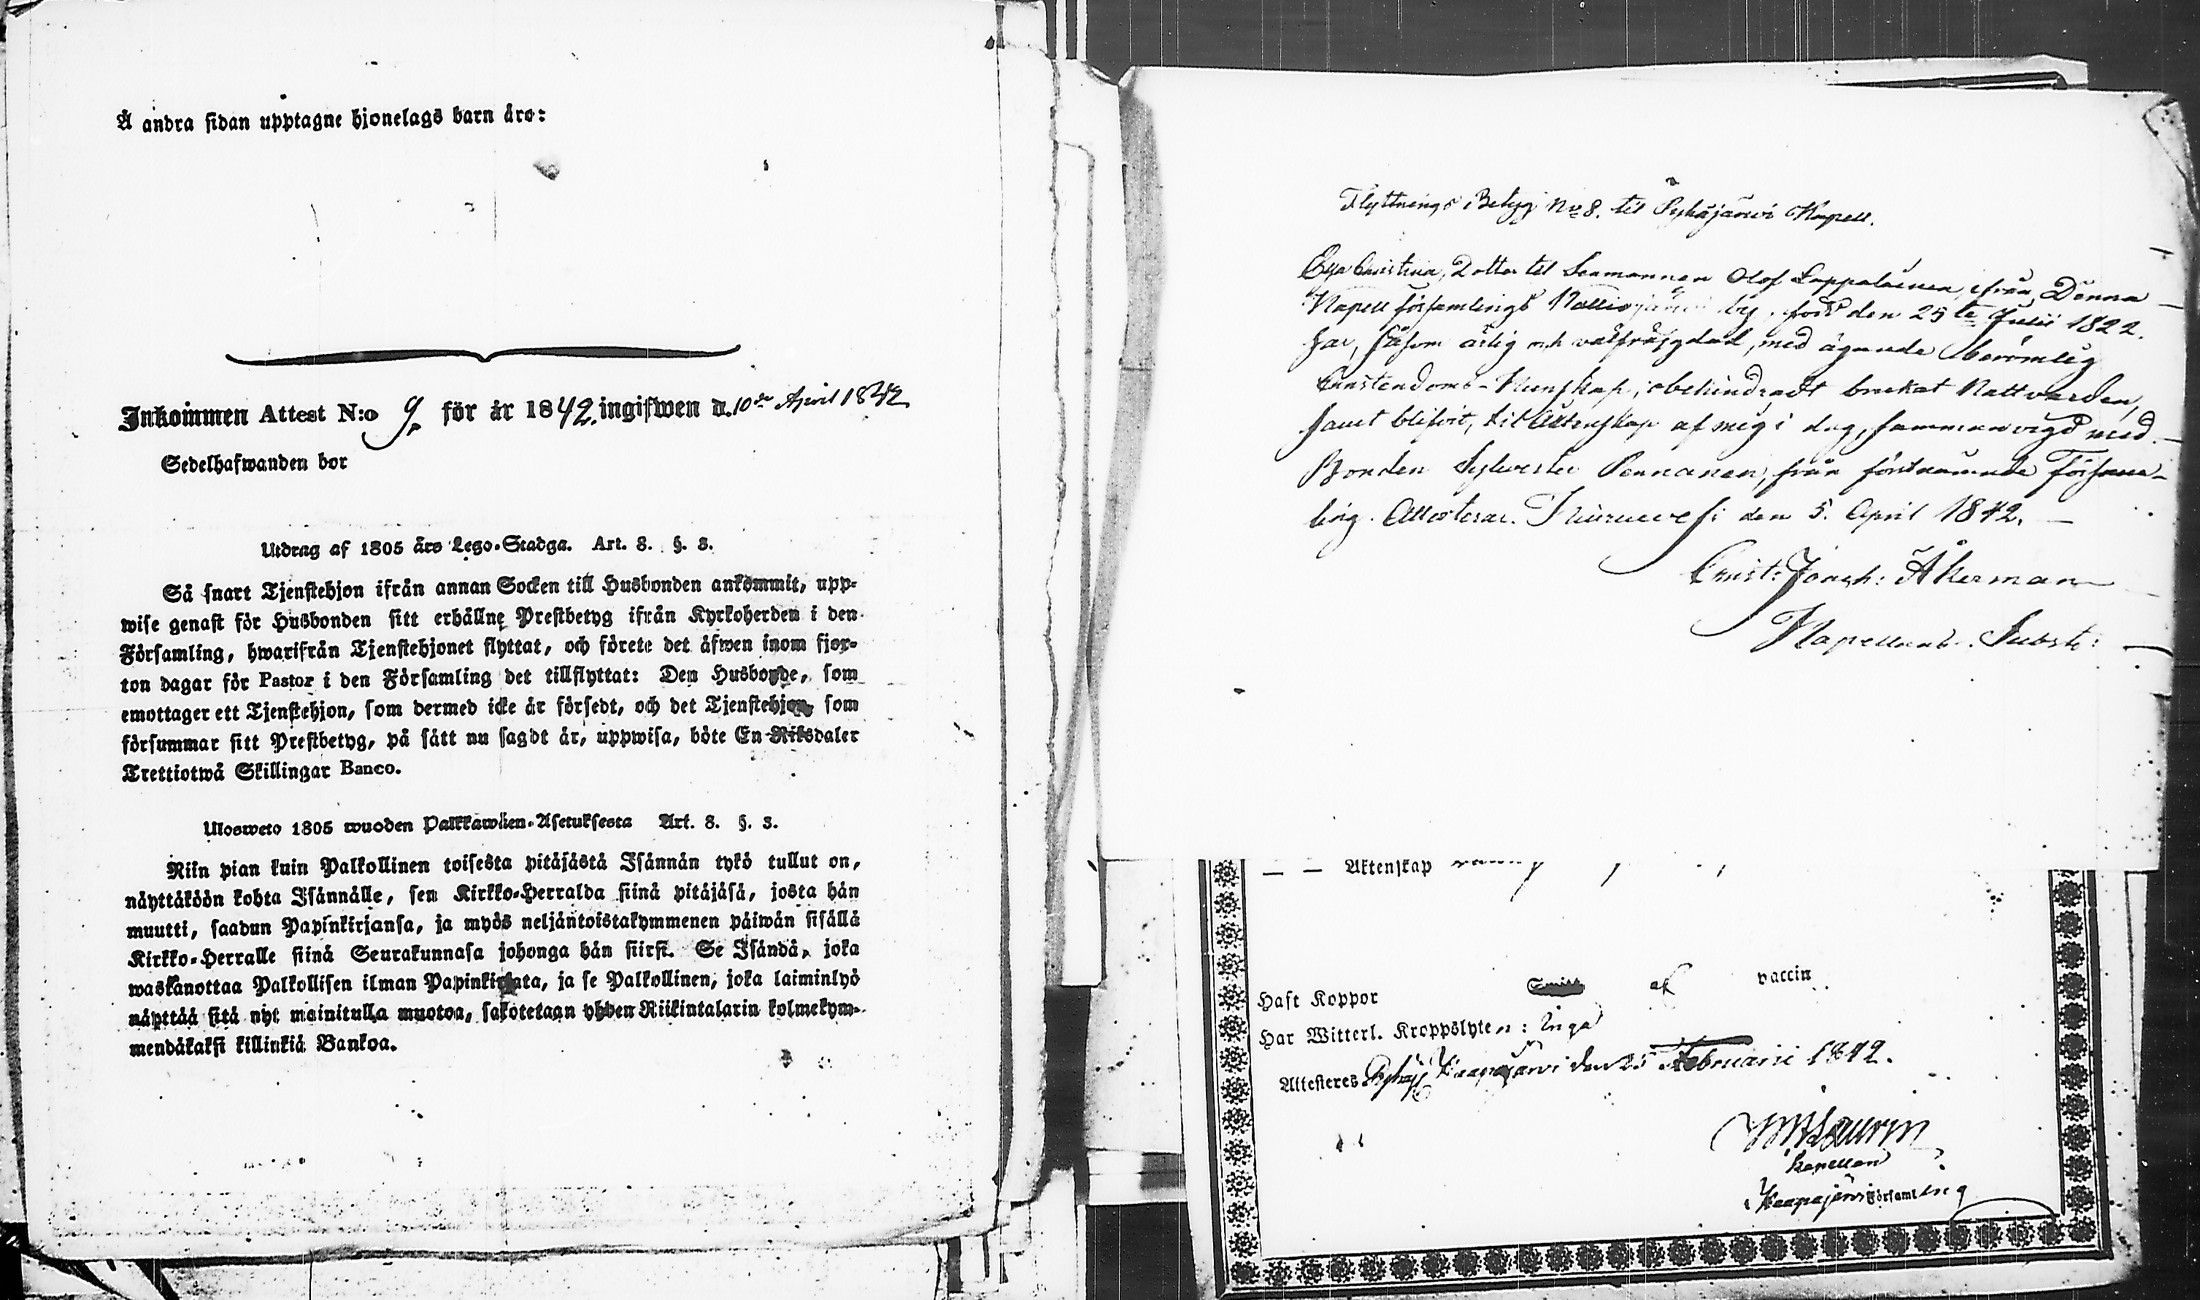 Å andra sidan upptagne hjonelags barn äro:
Inkommen Attest N:o 9. för år 1842. ingifwen d. 10de April 1842
Sedelhafwanden bor
Utdrag af 1805 års Lego-Stadga. Art. 8. §. 3.
Så snart Tjenstehjon ifrån annan Socken till Husbonden ankommit, upp-
wise genast för Husbonden sitt erhållne Prestbetyg ifrån Kyrkoherden i den
Församling, hwarifrån Tjenstehjonet flyttat, och förete det äfwen inom fjor-
ton dagar för Pastor i den Församling det tillflyttat: Den Husbonde, som
emottager ett Tjenstehjon, som dermed icke är försedt, och det Tjenstehjon, som
försummar sitt Prestbetyg, på sätt nu sagdt är, uppwisa, böte En Riksdaler
Trettiotwå Skillingar Banco.
Ulosweto 1805 wuoden Palkkawäen-Asetuksesta Art. 8. §. 3.
Niin pian kuin Palkollinen toisesta pitäjästä Isännän tykö tullut on,
näyttäköön kohta Isännälle, sen Kirkko-Herralda siinä pitäjäsä, josta hän
muutti, saadun Papinkirjansa, ja myös neljäntoistakymmenen päiwän sisällä
Kirkko-Herralle siinä Seurakunnasa johonga hän siirsi. Se Isändä, joka
waskanottaa Palkollisen ilman Papinkirjata, ja se Palkollinen, joka laiminlyö
näyttää sitä nyt mainitulla muotoa, sakotetaan yhden Riikintalarin kolmekym-
mendäkaksi killinkiä Bankoa.
Flyttnings Betyg No 8. til Pyhäjärvi Kapell.
Eva Christina, Dotter til Landmannen Olof Lappalainen, ifrån Denna
Kapell församlings by, född den 25te Julii 1822.
har, såsom ärlig och välfräjdad, med ägande berömlig
Christendoms-Kunskap, obehindradt brukat Nattvarden,
samt blifvit, til Äktenskap af mig i dag, sammanvigd med
Bonden Sylvester Pennanen, från förstnämnde Försam-
ling. Attesterar. Kiuruvesi den 5. April 1842.
Christ: Jonath: Åkerman
Kapellans Subst:
— — Äktenskap
Haft Koppor af vaccin
Har Witterl. Kroppslyten: Inga
Attesteres Kaapajärvi den 25 Februarii 1842.
Kapellan
Församling